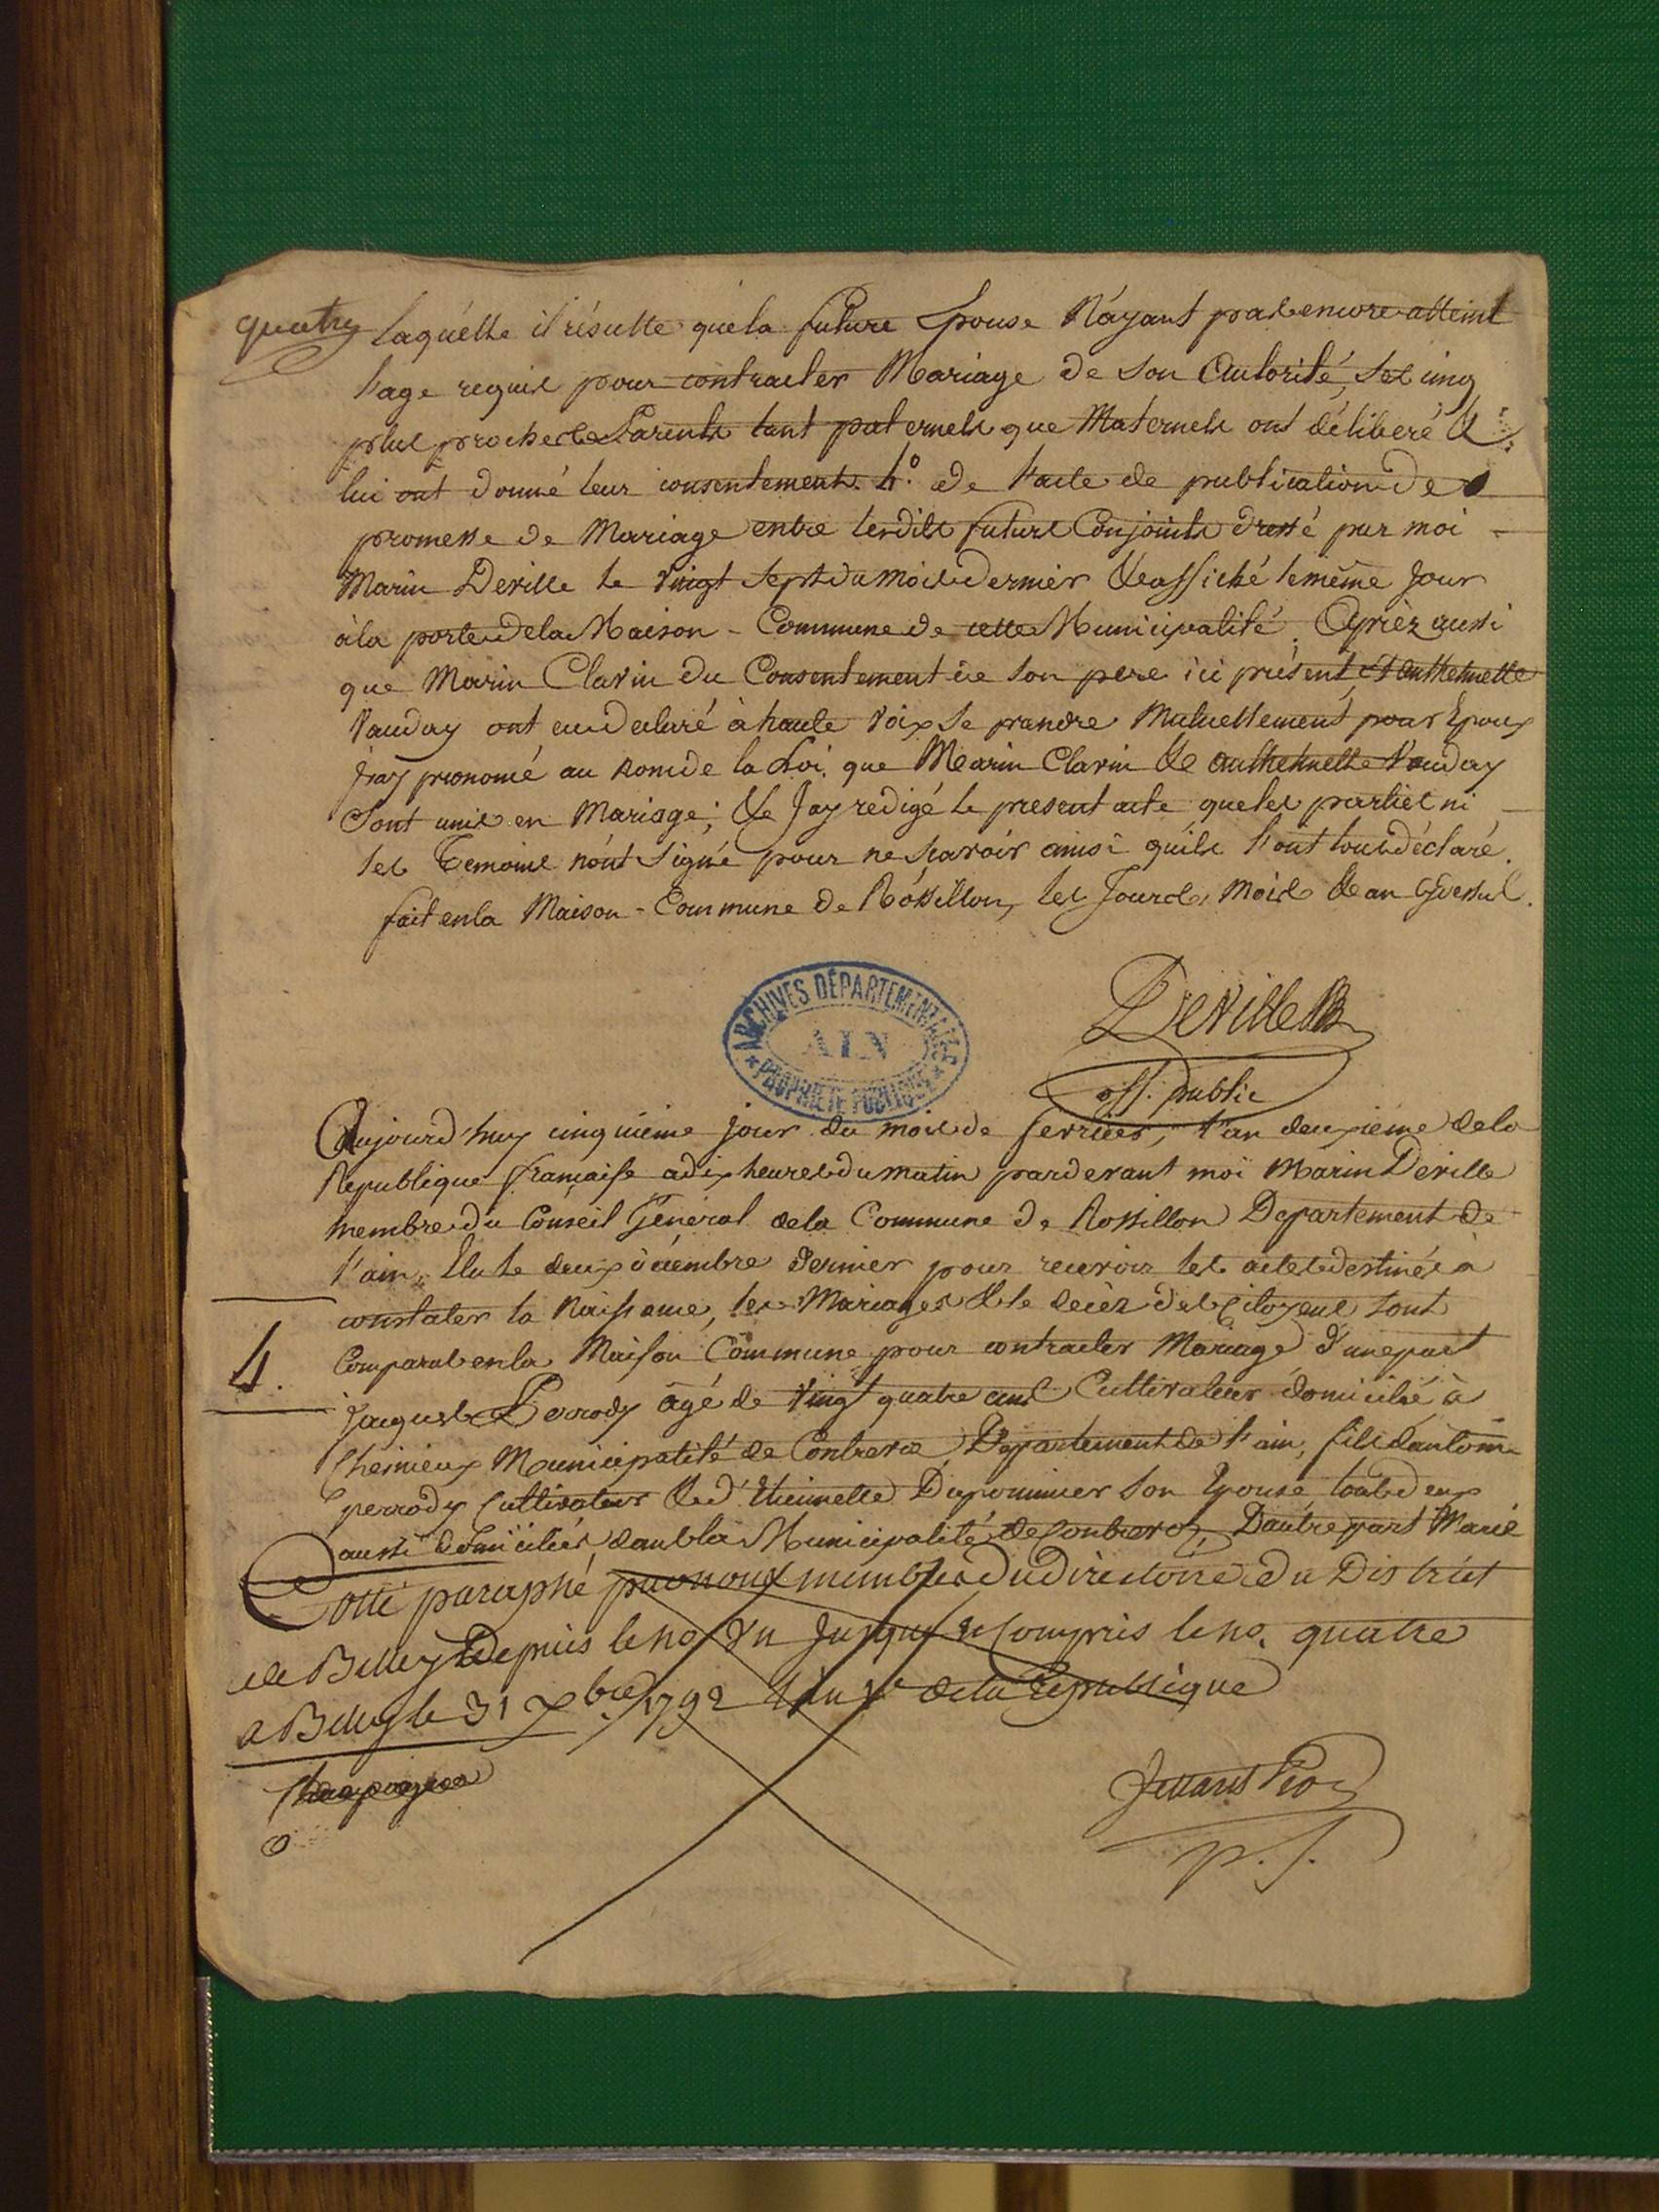 quatre
laquélle il résulte que la future Epouse N'áyant pas encore atteint
l'age requis pour contracter Mariage de son Autorité, ses cinq
plus proches Parents tant paternels que Maternels ont délibéré &
lui ont donné leur consentement. 4.° de l'acte de publication de
promesse de Mariage entre lesdits futurs Conjoints dressé par moi
Marin Deville le vingt Sept du mois dernier & affiché le même Jour
à la porte de la Maison - Commune de cette Municipalité. Aprèz aussi
que Marin Clavin du Consentement de son pere ici présent, & anthelmette
Vauday ont eu declaré à haute voix se prandre Mutuellement pour Epoux
J'ay prononcé au nom de la Loi, que Marin Clavin & anthelmette Vauday
Sont unis en Mariage; & Jay redigé le present acte que les parties ni
les Temoins n'ont signé pour ne sçavoir ainsi quils l'ont tous déclaré.
fait en la Maison - Commune de Rossillon, les Jours, Mois & an q dessus.
ARCHIVES DÉPARTEMENTALES
AIN
PROPRIÉTÉ PUBLIQUE
Deville
off. public
Aujourd'huy cinquième jour du mois de ferrier, l'an deuxième de la
Republique française a dix heures du matin pardevant moi Marin Deville
membre du Conseil Général de la Commune de Rossillon Departement de
l'ain, Elu le deux décembre dernier pour recevoir les actes destinés à
constater la Naissance, les Mariages & le decèz des Citoyens Sont
Comparus en la Maison Commune pour contracter Mariage d'une part
4.
Jacques Perrody âgé de vingt quatre ans Cultivateur domicilié à
Cheinieux Municipalité de Contrevoz, Departement de l'ain, fils d'antoine
perrody Cultivateur & d'Ethiennette Dupommier son Epouse tous deux
aussi domiciliés dans la Municipalité de Contrevoz, D'autre part Marie
Cotté paraphé par nous membres du directoire du District
de Belley Depuis le no. un Jusques & Compris le no. quatre
a Belley le 31 Xbre 1792 l'an 1er de la Republique
p. S.